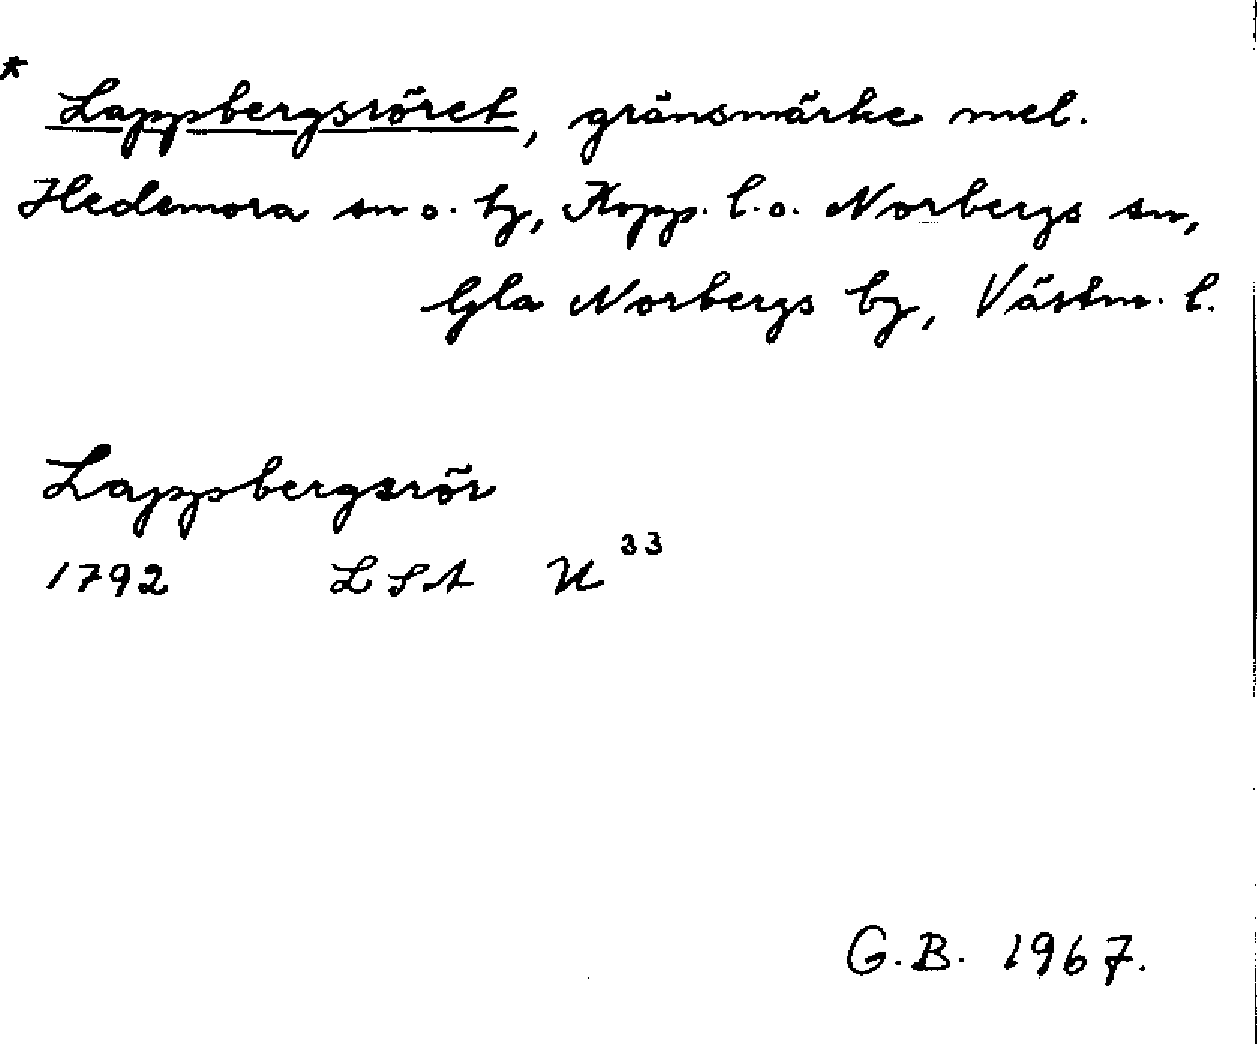 * Lappbergsröret, gränsmärke mel.
Hedemora sn o. by, Kopp. l. o. Norbergs sn,
Gla Norbergs by, Västm. l.
Lappsbergsrör
1792 LSA U 33
G.B. 1967.